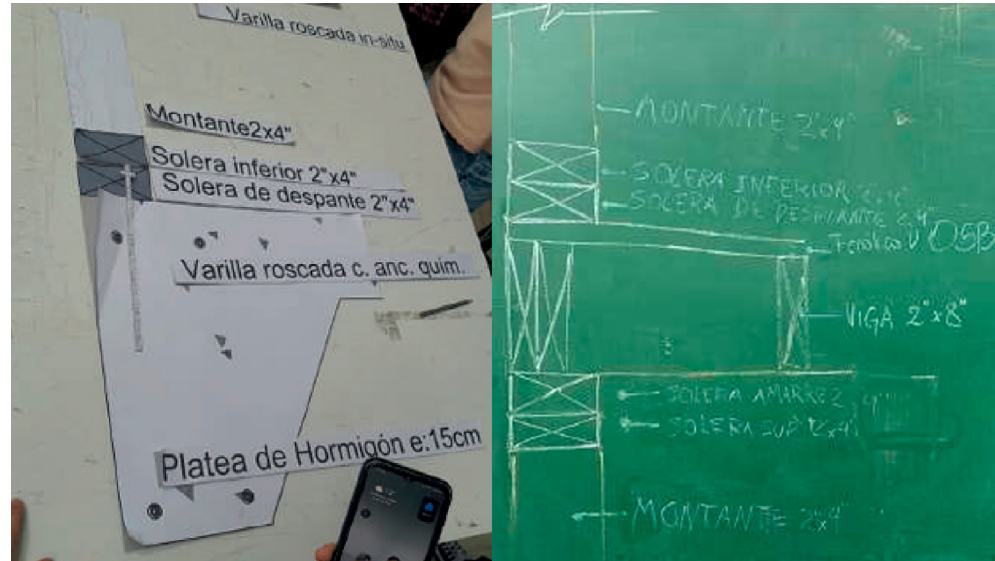 Varilla roscada in-situ
Montante2x4"
Solera inferior 2"x4"
Solera de despante 2"x4"
Varilla roscada c. anc. quim.
Platea de Hormigón e:15cm
MONTANTE 2"x4"
SOLERA INFERIOR
SOLERA DE DESPLANTE 2"x4"
OSB
VIGA 2"x8"
SOLERA AMARRE
SOLERA SUP 2x4"
MONTANTE 2x4"